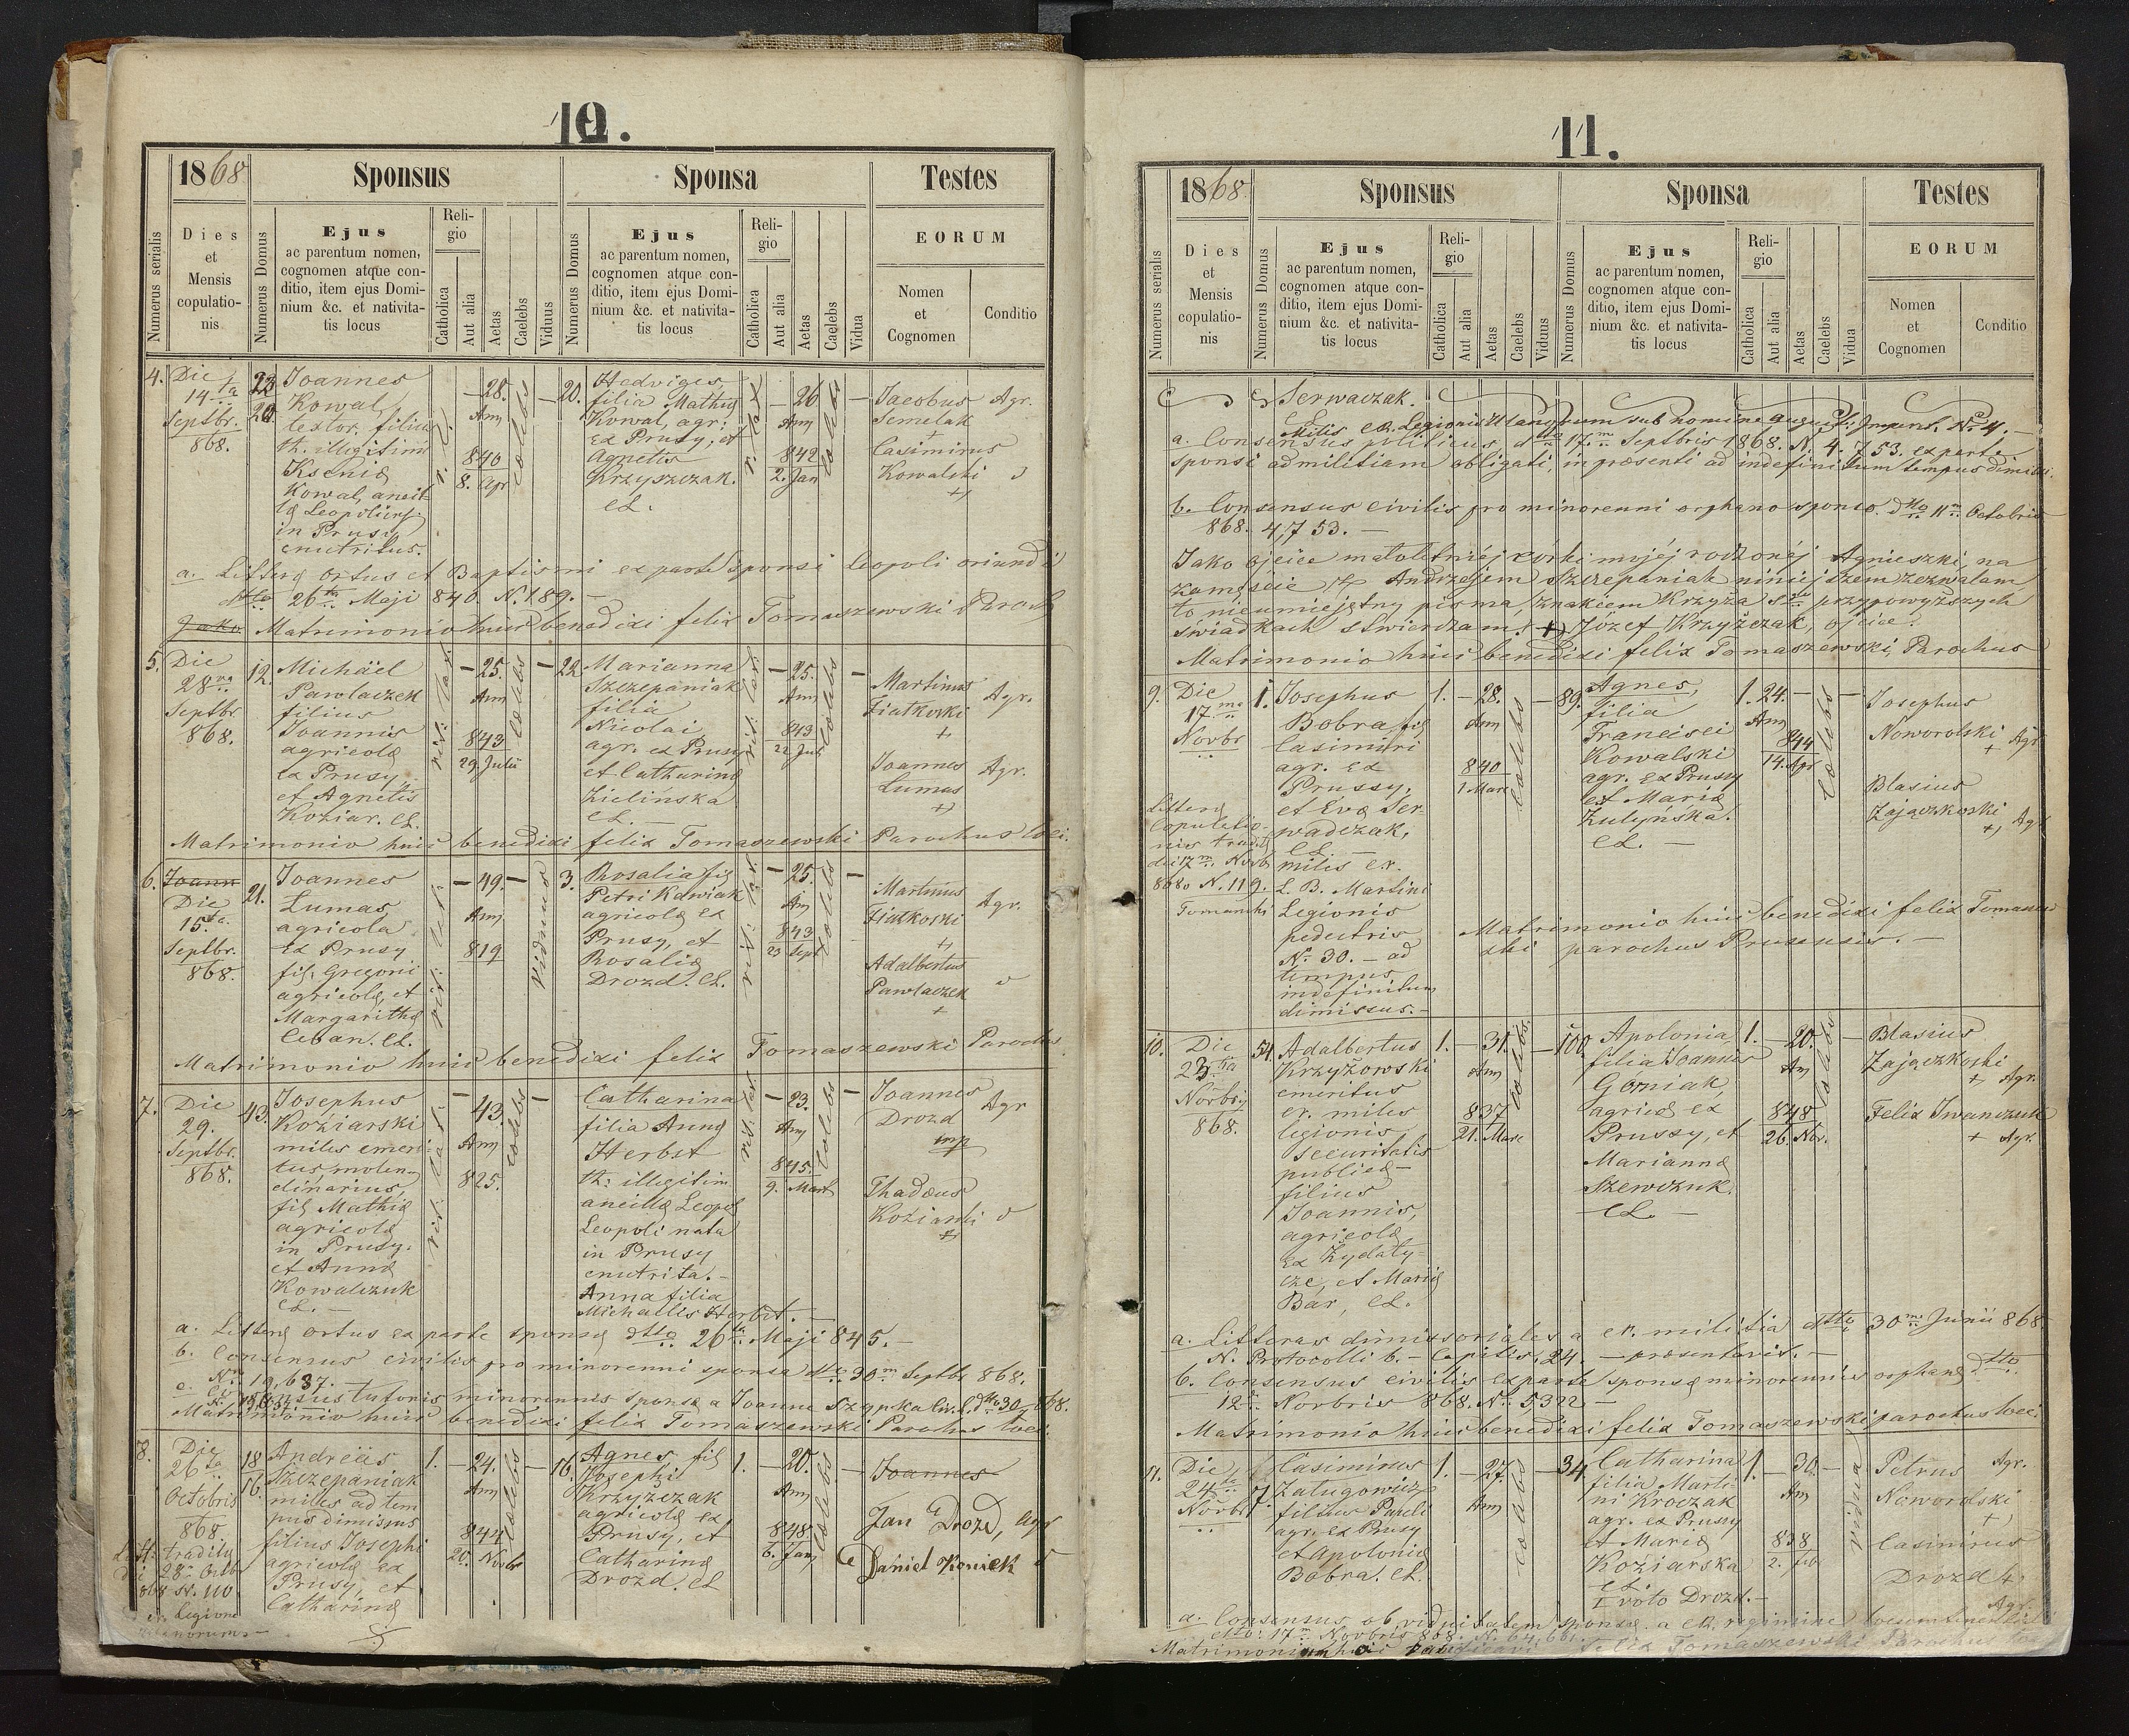 10.
1868
Sponsus
Sponsa
Testes
Numerus serialis
Dies
et
Mensis
copulatio-
nis
Numerus Domus
Ejus
ac parentum nomen,
cognomen atque con-
ditio, item ejus Domi-
nium &c. et nativita-
tis locus
Reli-
gio
Catholica
Aut alia
Aetas
Caelebs
Viduus
Numerus Domus
Ejus
ac parentum nomen,
cognomen atque con-
ditio, item ejus Domi-
nium &c. et nativita-
tis locus
Reli-
gio
Catholica
Aut alia
Aetas
Caelebs
Vidua
EORUM
Nomen
et
Cognomen
Conditio
4.
Die
14ta
Septbr.
868.
20
Joannes
Kowal
textor, filius
th. illegitimi
Kseniae
Kowal, ancil
lae Leopoliens
in Prusy
enutritus.
28.
Ann
840
8. Apr
coelebs
20.
Hedviges,
filia Mathiae
Kowal, agr:
ex Prusy, et
Agnetis
Krzyszczak.
CL.
26
Ann
842
2. Jan
coelebs
Jacobus
Semelak
+
Casimirus
Kowalski
+
Agr.
a. Litterae ortus et Baptismi ex parte sponsi Leopoli oriundi
dtto 26ta Maji 840. N. 189. —
Jako Matrimonio huic benedixi felix Tomaszewski Paroch
5.
Die
28va
Septbr.
868.
12.
Michäel
Pawlaczek
filius
Joannis
agricolae
ex Prusy,
et Agnetis
Koziar. CL.
rit: lat:
25.
Ann
843
29. Julii
coelebs
22
Marianna
Szczepaniak
filia
Nicolai
agr. ex Prusy
et Catharinae
Zielińska
CL. —
rit: lat:
25.
Ann
843
22 Jul
coelebs
Martinus
Fiatkoski
+
Joannes
Lumas
+
Agr.
Agr.
Matrimonio huic benedixi felix Tomaszewski Parochus loci.
6.
Joann
Die
15ta
Septbr.
868.
21.
Joannes
Lumas
agricola
ex Prusy
fil. Gregorii
agricolae, et
Margarithae
Ceban. CL.
rit: lat:
49.
Ann
819
Viduus
3.
Rosalia fil
Petri Kawiak
agricolae ex
Prusy, et
Rosaliae
Drozd. CL.
rit: lat:
25.
An
843
23 Sept
coelebs
Martinus
Fiatkoski
+
Adalbertus
Pawlaczek
+
Agr.
Matrimonio huic benedixi felix Tomaszewski Parochus
7.
Die
29.
Septbr.
868.
43.
Josephus
Koziarski
miles emeri-
tus, molen-
dinarius,
fil Mathiae
agricolae
in Prusy.
et Annae
Kowalczuk
CL. —
rit: lat:
43.
Ann
825.
coelebs
Catharina
filia Annae
Herbst
th: illegitim
ancillae Leopol
Leopoli nata
in Prusy
enutrita. —
Anna filia
Michaelis Herbst. —
rit: lat
23.
Ann
845.
9. Mart
coelebs
Joannes
Drozd
mp
Thadaeus
Koziarski
+
Agr
a. Litterae ortus ex parte sponsae dtto 26ta Maji 845. —
b. Consensus civilis pro minorenni sponsa dtto 30m Septb 868.
N. 19,637. —
c. Consensus tutoris minorennis sponsae a Joanne Szypka
Matrimonio huic benedixi felix Tomaszewski Parochus loci.
8.
Die
26ta
Octobris
868.
18
16.
Andreas
Szczepaniak
miles ad tem
pus dimissus
filius Josephi
agricolae ex
Prusy, et
Catharinae
1.
24.
Ann
844
20. Novbr
coelebs
16.
Agnes, fil
Josephi
Krzyzczak
agricolae ex
Prusy, et
Catharinae
Drozd. CL
1.
20.
Ann
848
6. Jan
coelebs
Joannes
Jan Drozd, agr
Daniel Koniek
11.
1868
Sponsus
Sponsa
Testes
Numerus serialis
Dies
et
Mensis
copulatio-
nis
Numerus Domus
Ejus
ac parentum nomen,
cognomen atque con-
ditio, item ejus Domi-
nium &c. et nativita-
tis locus
Reli-
gio
Catholica
Aut alia
Aetas
Caelebs
Viduus
Numerus Domus
Ejus
ac parentum nomen,
cognomen atque con-
ditio, item ejus Domi-
nium &c. et nativita-
tis locus
Reli-
gio
Catholica
Aut alia
Aetas
Caelebs
Vidua
EORUM
Nomen
et
Cognomen
Conditio
Serwaczak.
Militis ex Legionis Ulanorum sub nomine Augusti Imperat. No 4. —
a. Consensus politicus dtto 17m Septbris 1868. N. 4,753. ex parte
sponsi ad militiam obligati, in praesenti ad indefinitum tempus dimissi.
b. Consensus civilis pro minorenni orphano sponso. dtto 11m Octobris
868. 4,753. —
Jako ojciec małoletniéj córki mojéj rodzonéj Agnieszki, na
zamęście z Andrzejem Szczepaniak niniejszem zezwalam
to nieumiejętny pisma, znakiem Krzyża Sgo przy powyższych
świadkach stwierdzam. (+) Józef Krzyżczak, ojciec.
Matrimonio huic benedixi felix Tomaszewski Parochus
9.
Die
17ma
Novbr
Litterae
Copulatio-
nis traditae
die 17m Novb
868. N. 119.
1.
Josephus
Bobra, fil
Casimiri
agr. ex
Prussy,
et Evae Ser-
wadczak,
CL —
milis ex.
L. B. Martini
Legionis
pedestris
No 30. — ad
tempus
indefinitum
dimissus. —
1.
28.
Ann
840
1 Mart
coelebs
89.
Agnes,
filia
Francisci
Kowalski
agr. ex Prusy
et Mariae
Zulyńska.
CL. —
1.
24.
Ann
844
14. Apr
coelebs
Josephus
Noworolski
+
Agr
Blasius
Zajączkoski
+
Agr
Matrimonio huic benedixi felix Tomaszew
ski parochus Prusensis. —
10.
Die
23tia
Novbris
868.
54.
Adalbertus
Krzyżowski
emeritus
ex. miles
legionis
securitatis
publicae —
filius
Joannis,
agricolae
ex Zydaty-
cze, et Mariae
Bar, CL.
1.
31.
Ann
837
21. Marc
coelebs.
100.
Apolonia
filia Joannis
Gorniak,
agricolae ex
Prussy, et
Mariannae
Szewczuk.
CL. —
1.
20.
An
848
26. Nov.
coelebs
Blasius
Zajączkoski
+
Agr.
Felix Iwanczuk
+
Agr.
a. Litteras dimissoriales a ex. militia dtto 30m Junii 868
N. Protocolli 6. — Capitis, 24. — praesentavit. —
b. Consensus civilis ex parte sponsae minorennis orphanae dtto
12. Novbris 868. No 5,322 —
Matrimonio huic benedixi felix Tomaszewski parochus loci.
11.
Die
24ta
Novbr
7.
Casimirus
Zalugowicz
filius Pauli
agr. ex Prusy
et Apoloniae
Bobra. CL.
1.
27.
Ann
coelebs
34.
Catharina
filia Marti-
ni Kroczak
agr. ex Prusy
et Mariae
Koziarska
CL.
I voto Drozd. —
1.
30.
An
838
2. feb
vidua
Petrus
Noworolski
+
Agr.
Casimirus
Drozd +
Agr.
a. Consensus ob viduitatem sponsae a
dtto 17m Novbris 868. N. 64,661.
Matrimonium huic Felix Tomaszewski Parochus